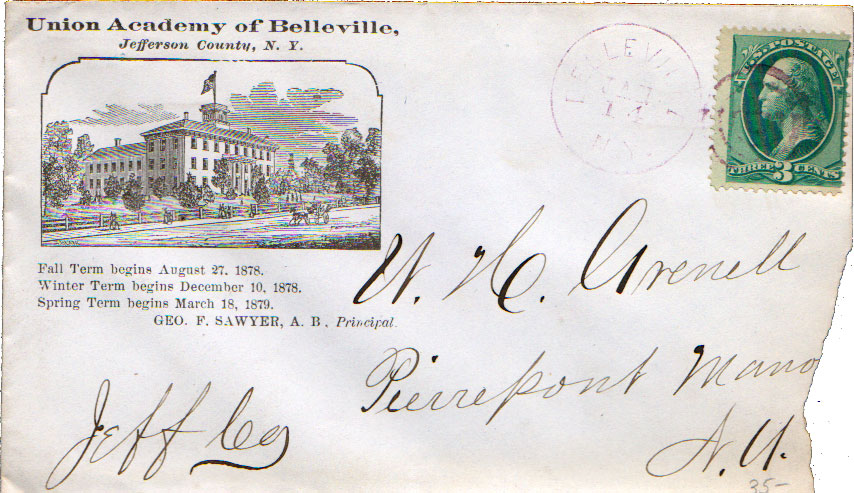 Union Academy of Belleville,
Jefferson County, N. Y.
BELLEVILLE
JAN
14
N.Y.
U.S. POSTAGE
THREE 3 CENTS
Fall Term begins August 27. 1878.
Winter Term begins December 10, 1878.
Spring Term begins March 18, 1879.
GEO. F. SAWYER, A. B., Principal.
W. H. Grenell
Pierrepont Mano
N. Y.
Jeff Co
35-